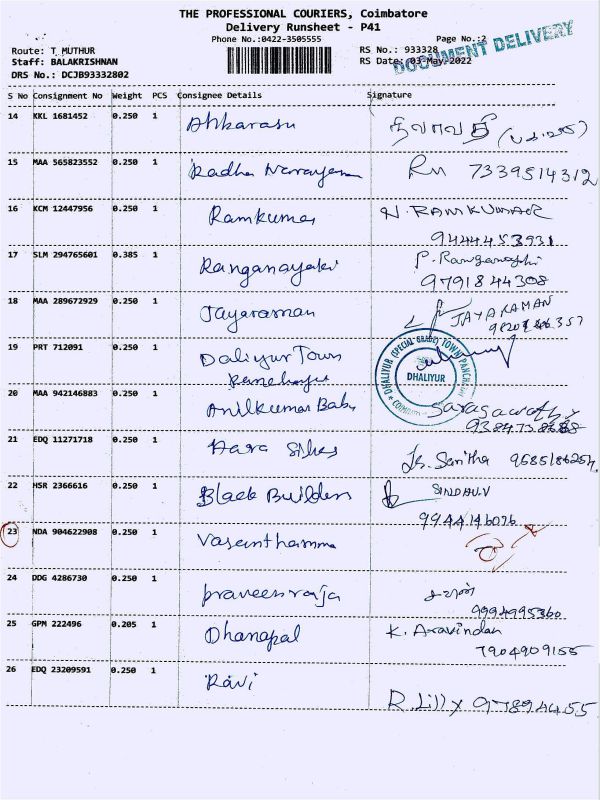 THE PROFESSIONAL COURIERS, Coimbatore
Delivery Runsheet - P41
Phone No.:0422-3505555
Page No.:2
Route: T MUTHUR
RS No.: 933328
Staff: BALAKRISHNAN
RS Date: 03-May-2022
DRS No.: DCJB93332802
DOCUMENT DELIVERY
S No Consignment No Weight PCS Consignee Details Signature
14 KKL 1681452 0.250 1
15 MAA 565823552 0.250 1 Radha Narrayanan 7339514312
16 KCM 12447956 0.250 1 Ramkumar N. RAMKUMAR
9444453931
17 SLM 294765601 0.385 1 Ranganayaki P. Ranganayaki
9791844308
18 MAA 289672929 0.250 1 Jayaraman JAYARAMAN
19 PRT 712091 0.250 1 Daliyur Town
DHALIYUR (SPECIAL GRADE) TOWN PANCHAYAT
DHALIYUR
20 MAA 942146883 0.250 1 Anilkumar Babu
21 EDQ 11271718 0.250 1
22 HSR 2366616 0.250 1 Black Builders SINDHU.V
9944146076
23 NDA 904622908 0.250 1 Vasanthamma
24 DDG 4286730 0.250 1 praveenraja
9994995360
25 GPM 222496 0.205 1 Dhanapal K. Aravindan
7904909155
26 EDQ 23209591 0.250 1 Ravi
R. Lilly 97894455